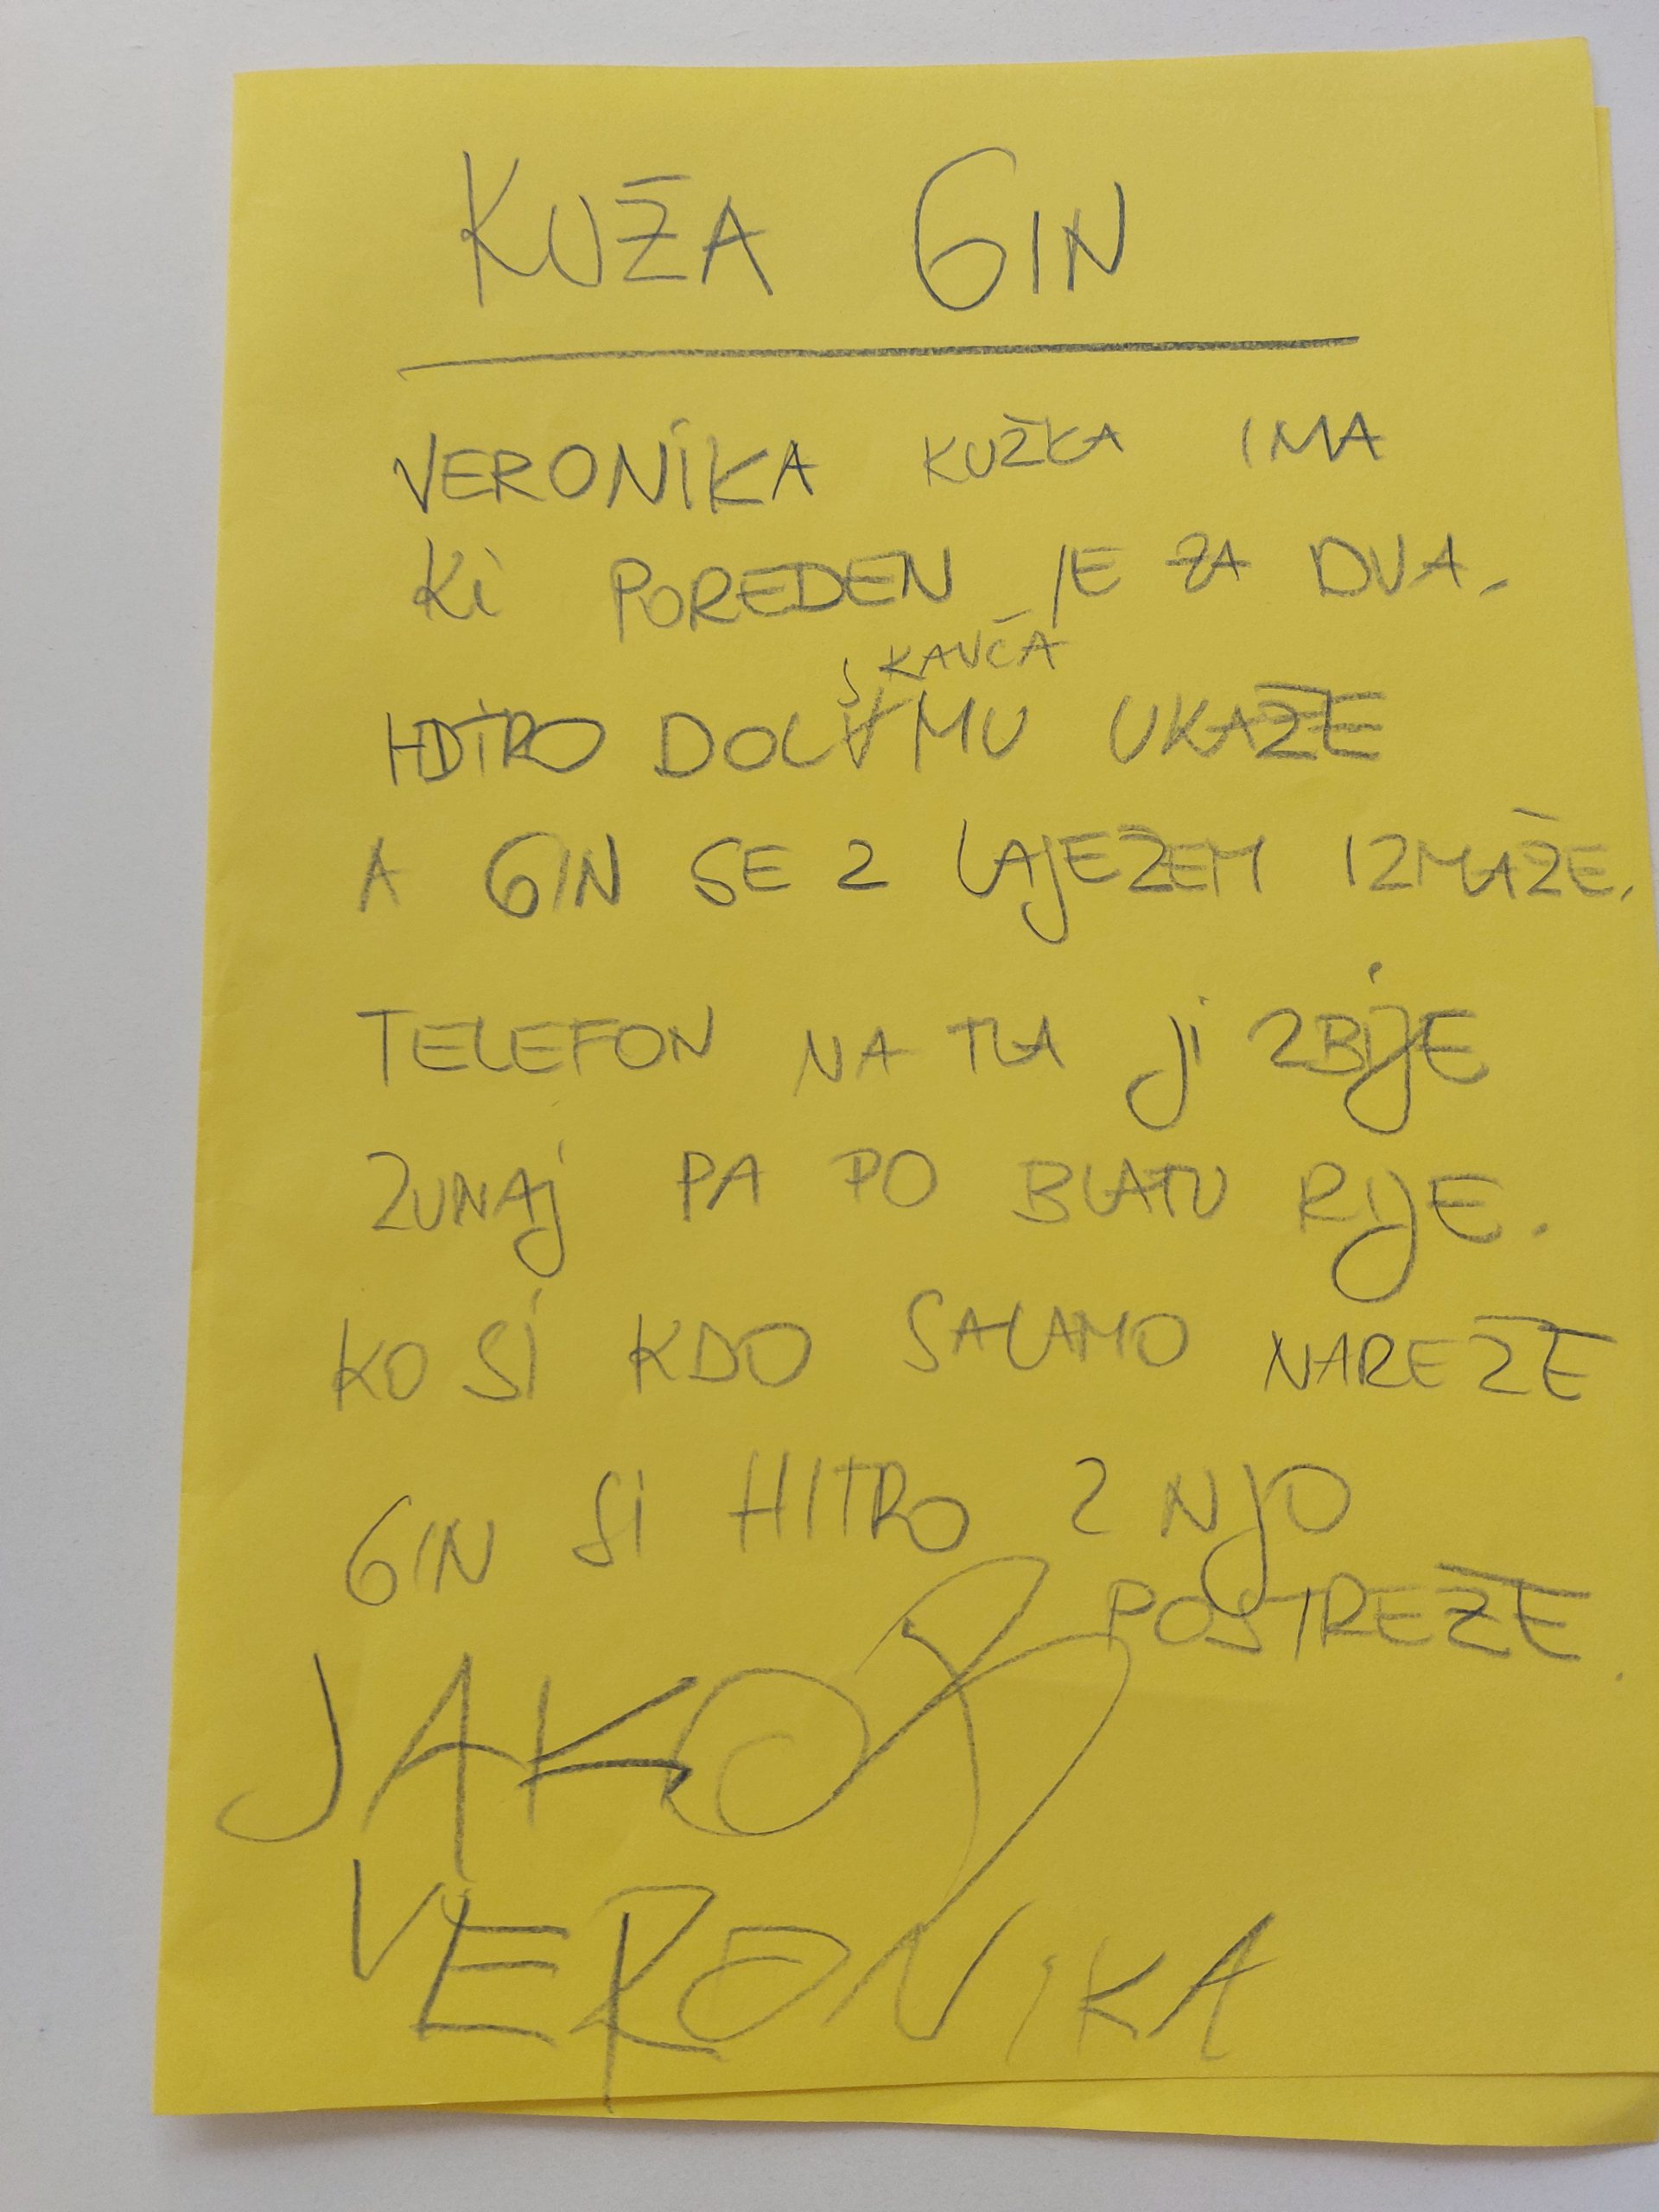 KUŽA GIN
VERONIKA KUŽKA IMA
KI POREDEN JE ZA DVA.
S KAVČA
HITRO DOL MU UKAŽE
A GIN SE Z LAJEŽEM IZMAŽE.
TELEFON NA TLA JI ZBIJE
ZUNAJ PA PO BLATU RIJE.
KO SI KDO SALAMO NAREŽE
GIN SI HITRO Z NJO
POSTREŽE.
JAKOB
VERONIKA